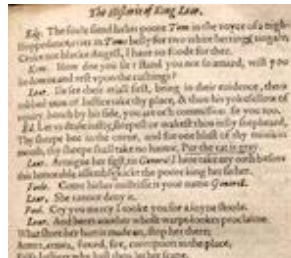 The Historie of King Lear.
Edg. The foule fiend hites poore Tom in the voyce of a nigh-
Hoppedance cries in Toms belly for two white herring,
Croke not blacke Angell, I have no foode for thee.
Kent. How doe you sir? stand you not so amazd, will you
lie downe and rest upon the cushings?
Lear. Ile see their triall first, bring in their evidence, thou
robbed man of Iustice take thy place, & thou his yokefellow of
equity, bench by his side, you are oth commission, sit you too.
Ed. Let us deale iustly, sleepest or wakest thou iolly shepheard,
Thy sheepe bee in the corne, and for one blast of thy minikin
mouth, thy sheepe shall take no harme, Pur the cat is gray.
Lear. Arraigne her first, tis Gonoril I here take my oath before
this honorable assembly kickt the poore king her father.
Foole. Come hither mistrisse is your name Gonoril.
Lear. She cannot deny it.
Fool. Cry you mercy I tooke you for a ioyne stoole.
Lear. And heers another whose warpt lookes proclaime
What store her hart is made an, stop her there,
Armes, armes, sword, fire, corruption in the place,